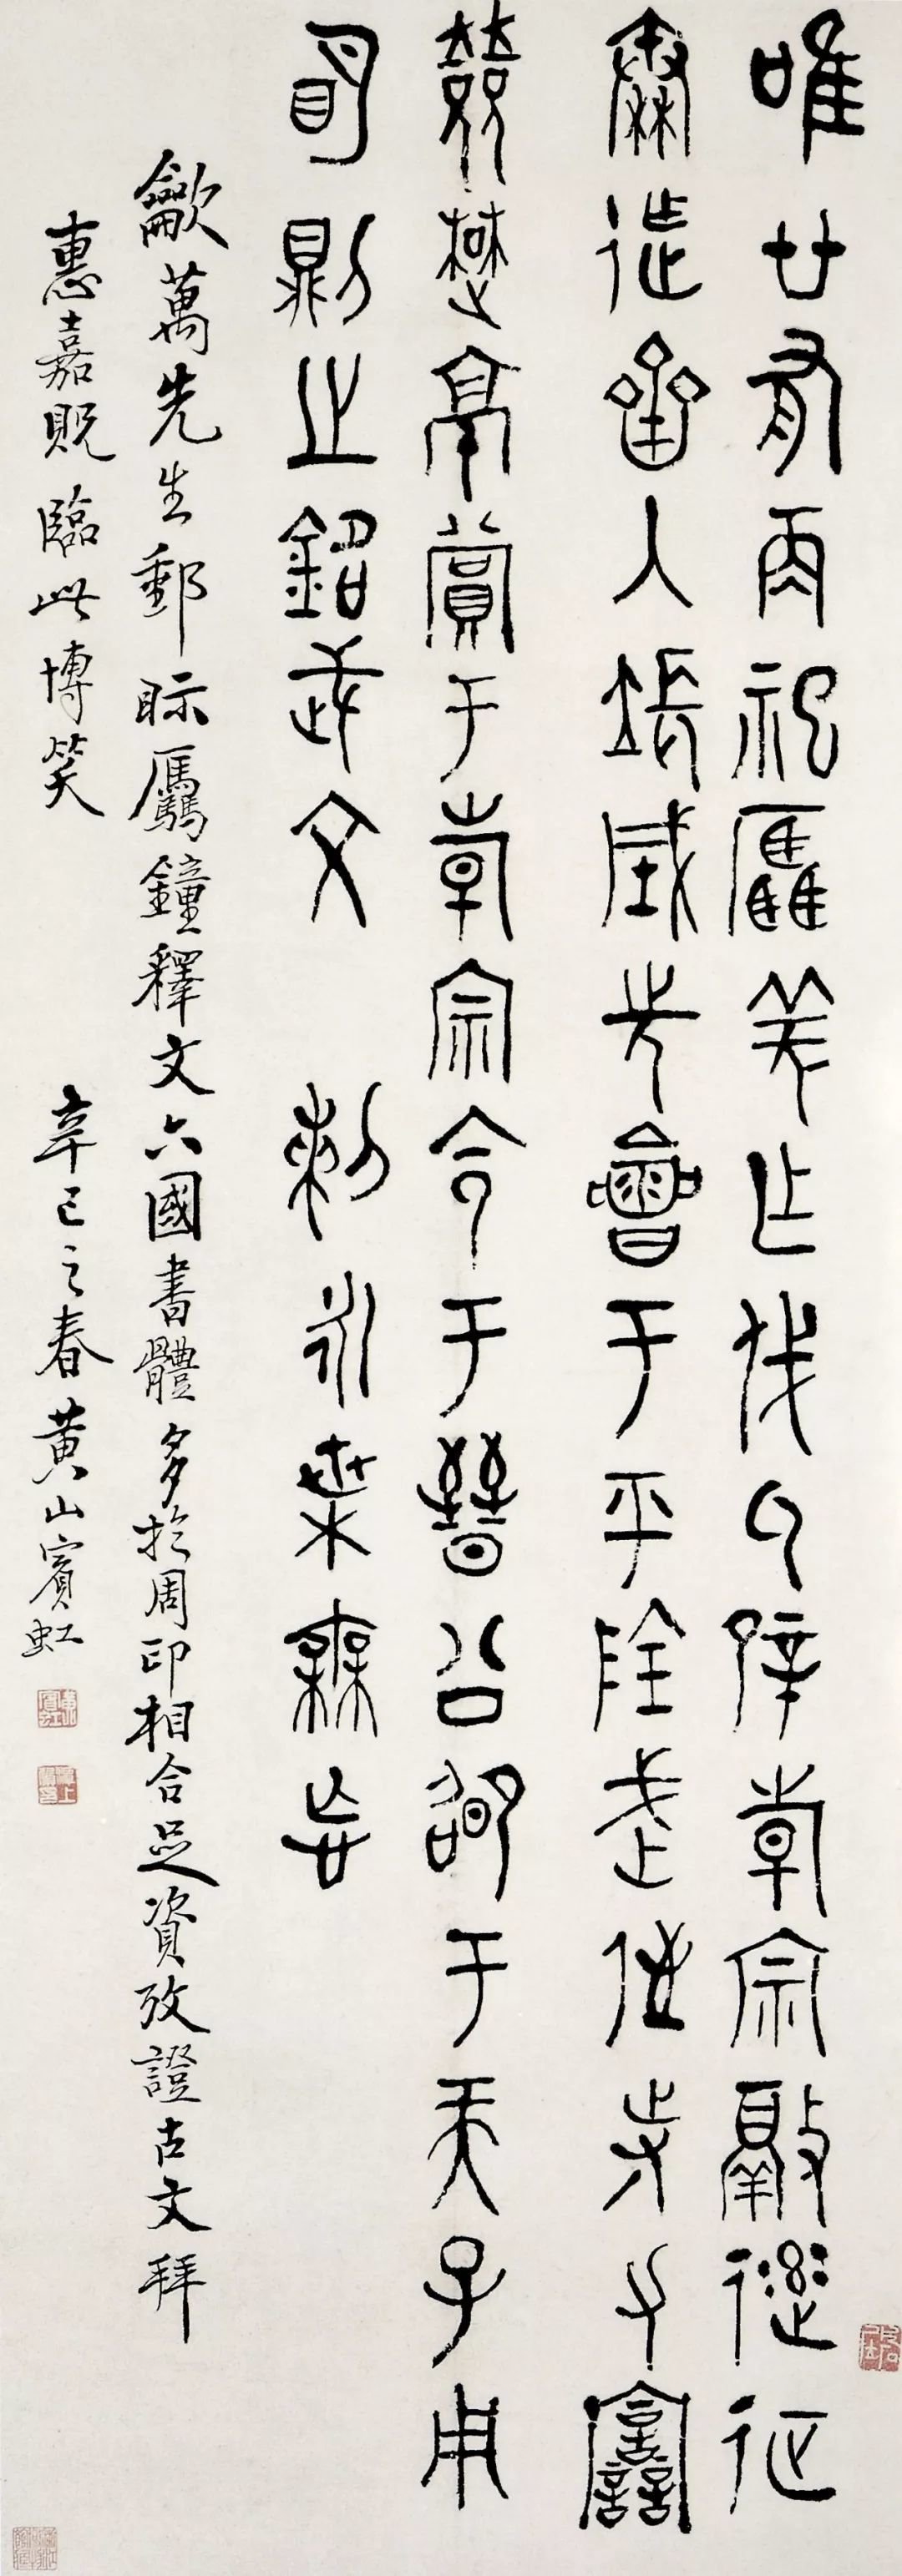 唯廿有再祀驫羌乍伐氒辟倝宗敲逹征
秦迮齊入長城先會于平陰武侄寺力譶
敚楚京賞于倝宗令于晉公卲于天子用
明則之銘武文 剌永枼無忘
龡萬先生郵眎驫鐘釋文六國書體多於周印相合足資攷證古文拜
惠嘉貺臨此博笑 辛巳之春黃山賓虹